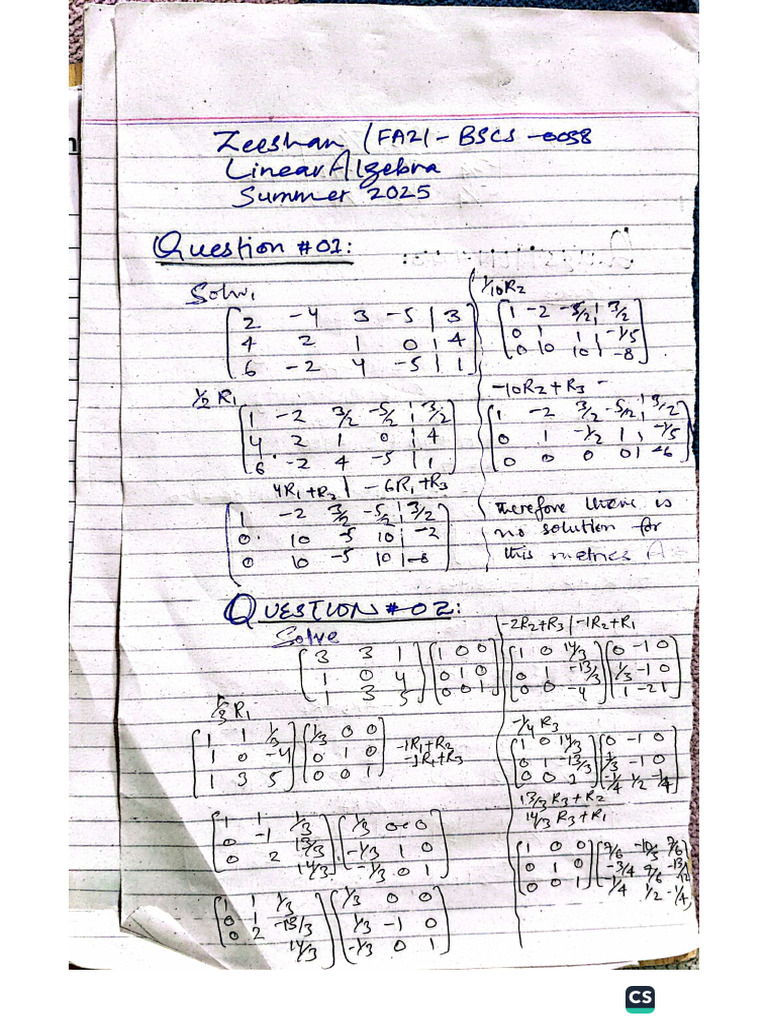 Zeeshan (FA21-BSCS-0058
Linear Algebra
Summer 2025
Question #01:
Solv,
2 -4 3 -5 | 3
4 2 1 0 | 4
6 -2 4 -5 | 1
1/2 R1
1 -2 3/2 -5/2 | 3/2
4 2 1 0 | 4
6 -2 4 -5 | 1
4R1+R2 | -6R1+R3
1 -2 3/2 -5/2 | 3/2
0 10 -5 10 | -2
0 10 -5 10 | -8
1/10R2
1 -2 -5/2 | 3/2
0 1 1 | -1/5
0 10 10 | -8
-10R2+R3
1 -2 3/2 -5/2 | 3/2
0 1 -1/2 1 | -1/5
0 0 0 0 | -6
Therefore there is
no solution for
this metrics A
QUESTION #02:
Solve
3 3 1 1 0 0
1 0 4 0 1 0
1 3 5 0 0 1
1/3 R1
1 1 1/3 1/3 0 0
1 0 -4 0 1 0
1 3 5 0 0 1
-1R1+R3
-1R1+R3
1 1 1/3 1/3 0 0
0 -1 13/3 -1/3 1 0
0 2 14/3 -1/3 0 1
1 1 1/3 1/3 0 0
0 1 -13/3 1/3 -1 0
0 2 14/3 -1/3 0 1
-2R2+R3 | -1R2+R1
1 0 14/3 0 -1 0
0 1 -13/3 1/3 -1 0
0 0 -4 1 -2 1
-1/4 R3
1 0 14/3 0 -1 0
0 1 -13/3 1/3 -1 0
0 0 1 -1/4 1/2 -1/4
13/3 R3+R2
14/3 R3+R1
1 0 0 7/6 -10/3 7/6
0 1 0 -3/4 7/6 -13/12
0 0 1 1/4 1/2 -1/4
CS